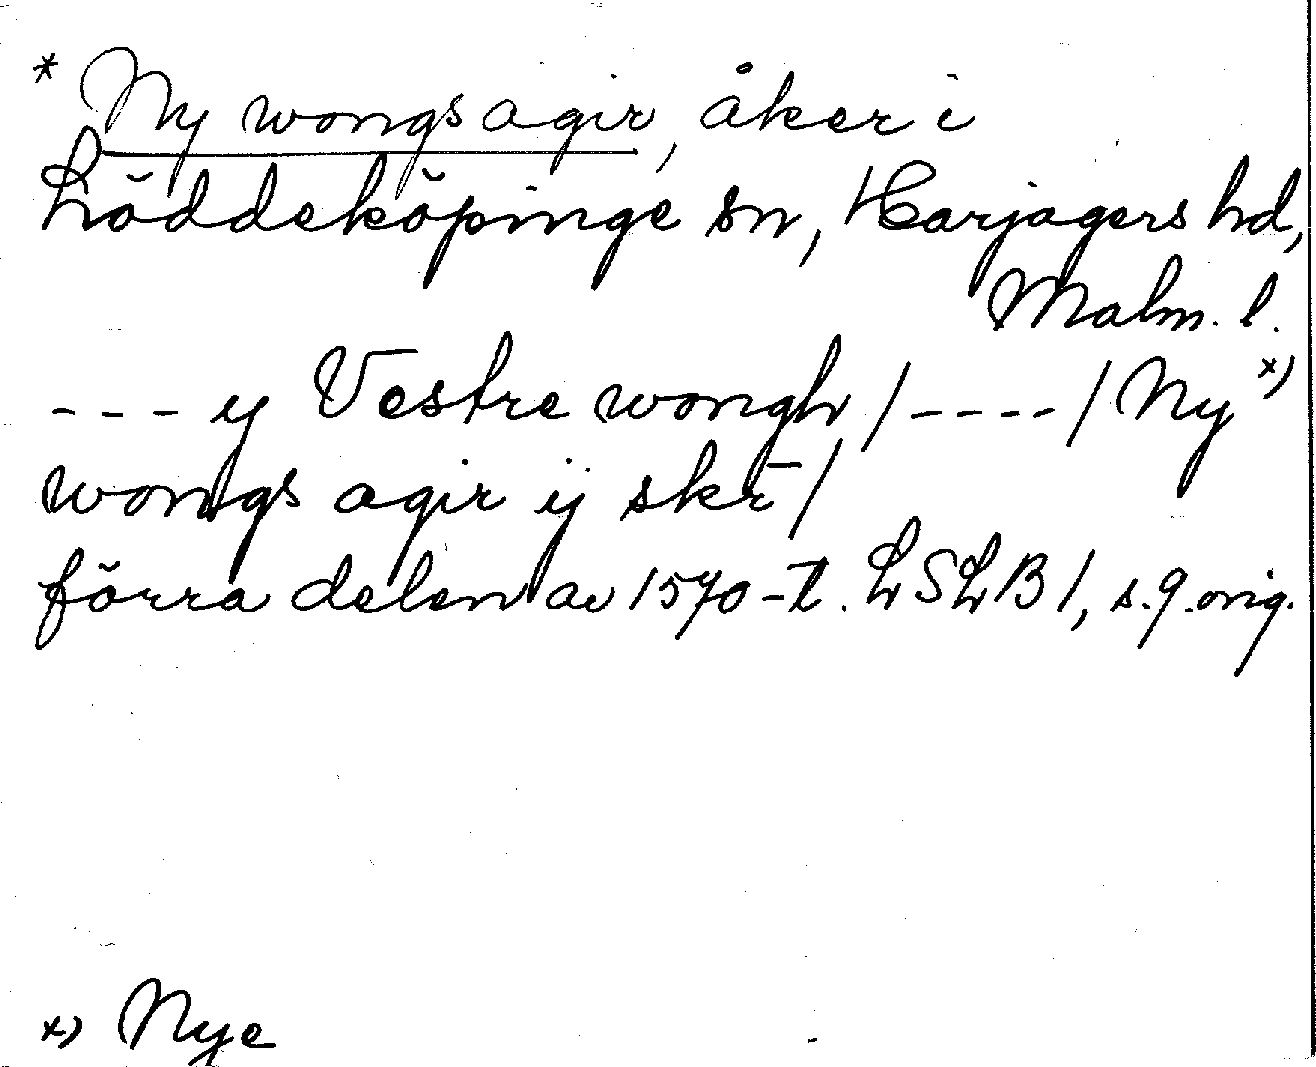 * Ny wongs agir, åker i
Löddeköpinge sn, Harjagers hd,
Malm. l.
--- y Vestre wongh /----/ Ny x)
wongs agir ij skr̄ /
förra delen av 1570-t. LSLB 1, s. 9 orig.
x) Nye